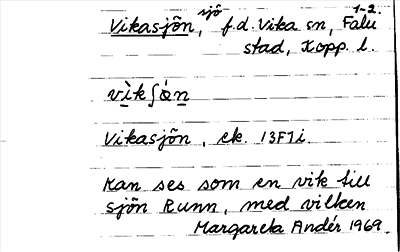 sjö 1-2.
Vikasjön, f.d. Vika sn, Falu
stad, Kopp. l.
vìkʃón
Vikasjön, ek. 13F7i.
Kan ses som en vik till
sjön Runn, med vilken
Margareta Andér 1969.